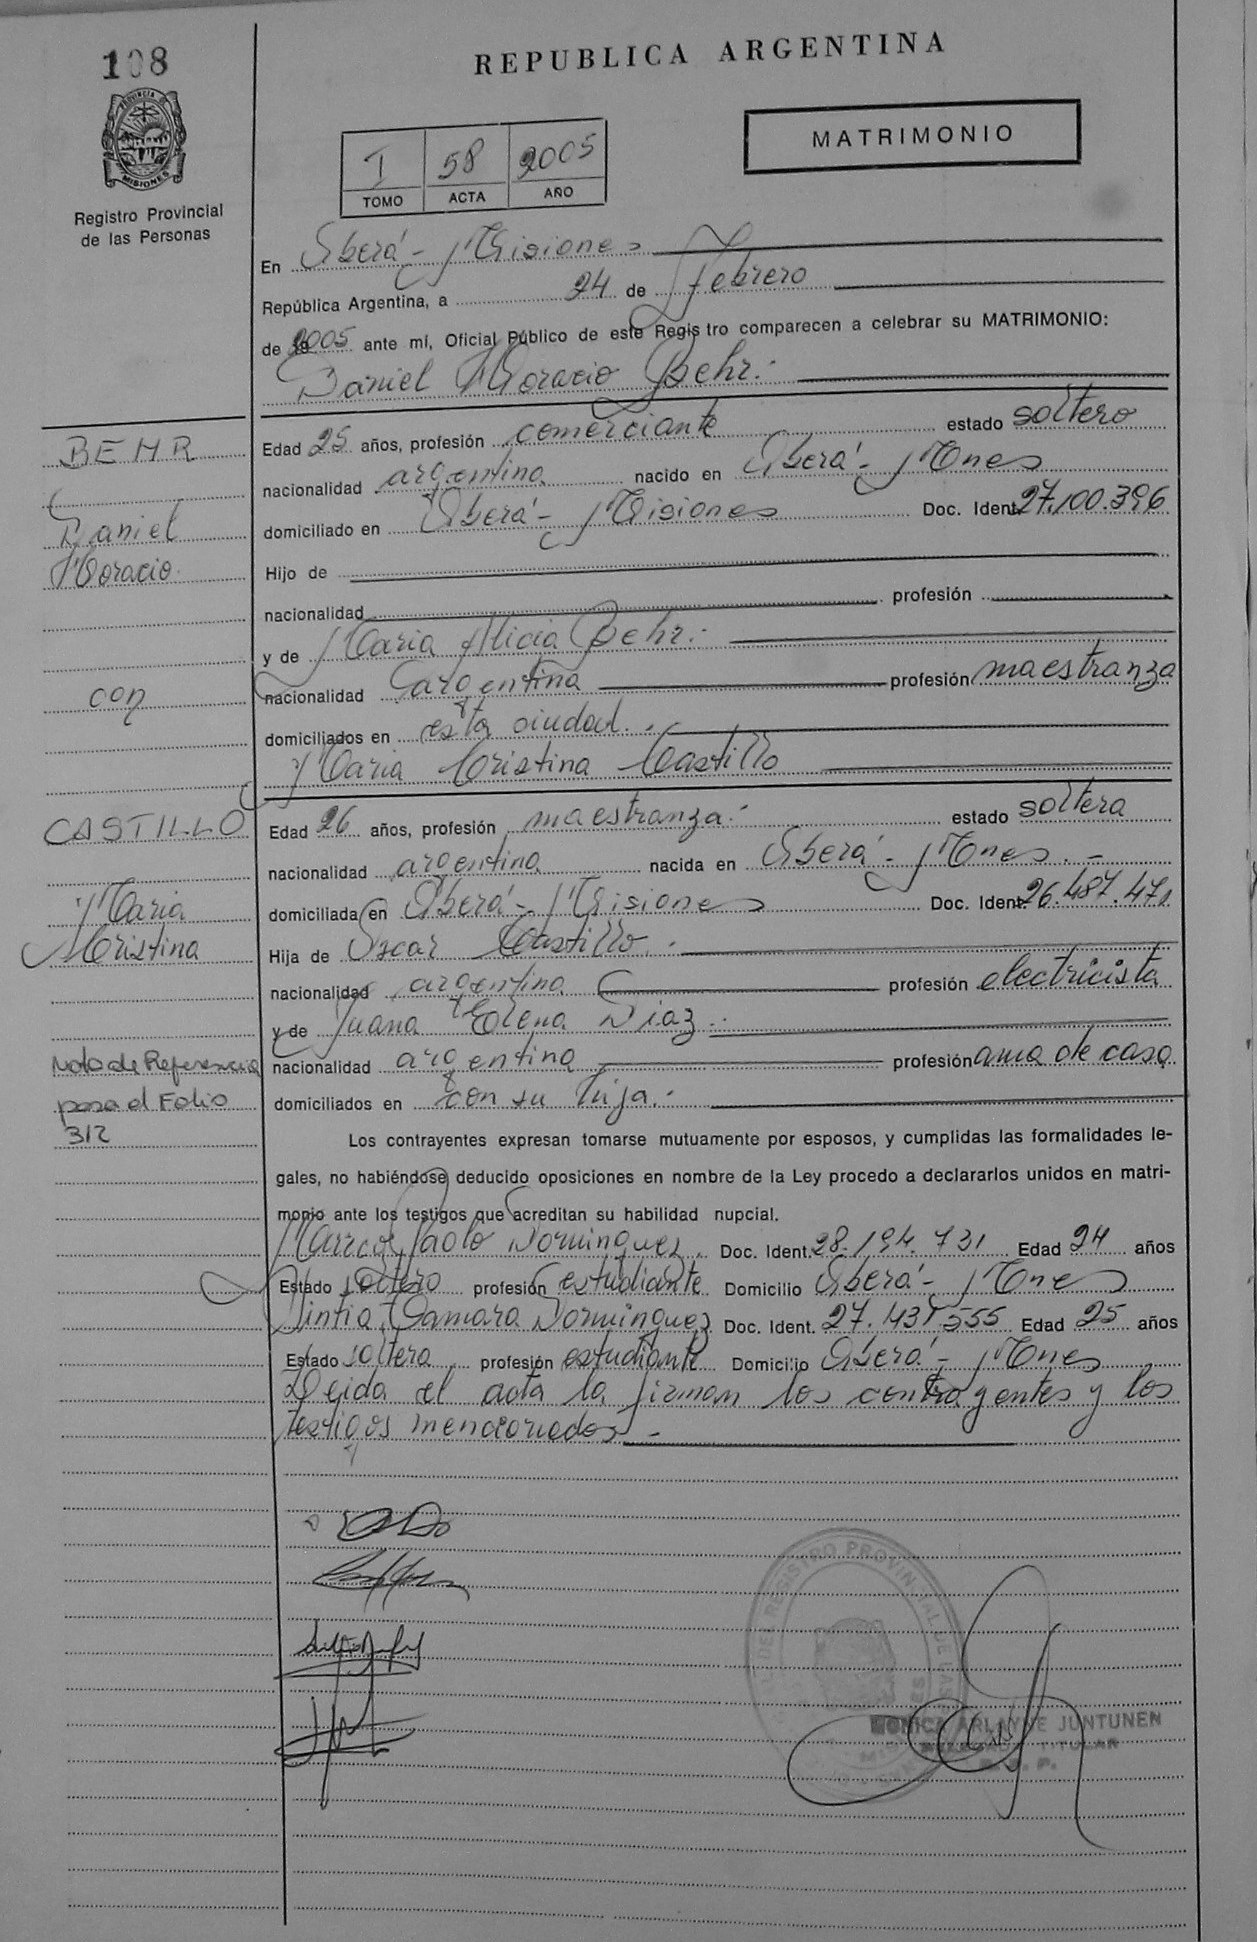 108
REPUBLICA ARGENTINA
MATRIMONIO
PROVINCIA DE MISIONES
Registro Provincial
de las Personas
I 58 2005
TOMO ACTA AÑO
En Oberá - Misiones
República Argentina, a 24 de Febrero
de 2005 ante mí, Oficial Público de este Registro comparecen a celebrar su MATRIMONIO:
Daniel Horacio Behr.-
BEHR
Daniel
Horacio.
con
CASTILLO
Maria
Cristina
Nota de Referencia
pasa al Folio
312
Edad 25 años, profesión comerciante estado soltero
nacionalidad argentina nacido en Oberá - Mnes
domiciliado en Oberá - Misiones Doc. Ident. 27.100.396
Hijo de
nacionalidad profesión
y de Maria Alicia Behr.-
nacionalidad argentina profesión maestranza
domiciliados en esta ciudad.-
Maria Cristina Castillo
Edad 26 años, profesión maestranza.- estado soltera
nacionalidad argentina nacida en Oberá - Mnes. -
domiciliada en Oberá - Misiones Doc. Ident. 26.487.471
Hija de Oscar Castillo.-
nacionalidad argentina profesión electricista
y de Juana Elena Diaz.-
nacionalidad argentina profesión ama de casa
domiciliados en con su hija.-
Los contrayentes expresan tomarse mutuamente por esposos, y cumplidas las formalidades le-
gales, no habiéndose deducido oposiciones en nombre de la Ley procedo a declararlos unidos en matri-
monio ante los testigos que acreditan su habilidad nupcial.
Marcos Paolo Dominguez. Doc. Ident. 28.194.731 Edad 24 años
Estado soltero profesión estudiante Domicilio Oberá - Mnes
Sintia Tamara Dominguez Doc. Ident. 27.437.555 Edad 25 años
Estado soltera profesión estudiante Domicilio Oberá - Mnes
Leida el acta la firman los contrayentes y los
testigos mencionados -
DEL REGISTRO PROVINCIAL DE LAS
MONICA ARLAYNE JUNTUNEN
DELEGADA TITULAR
R. P. P.